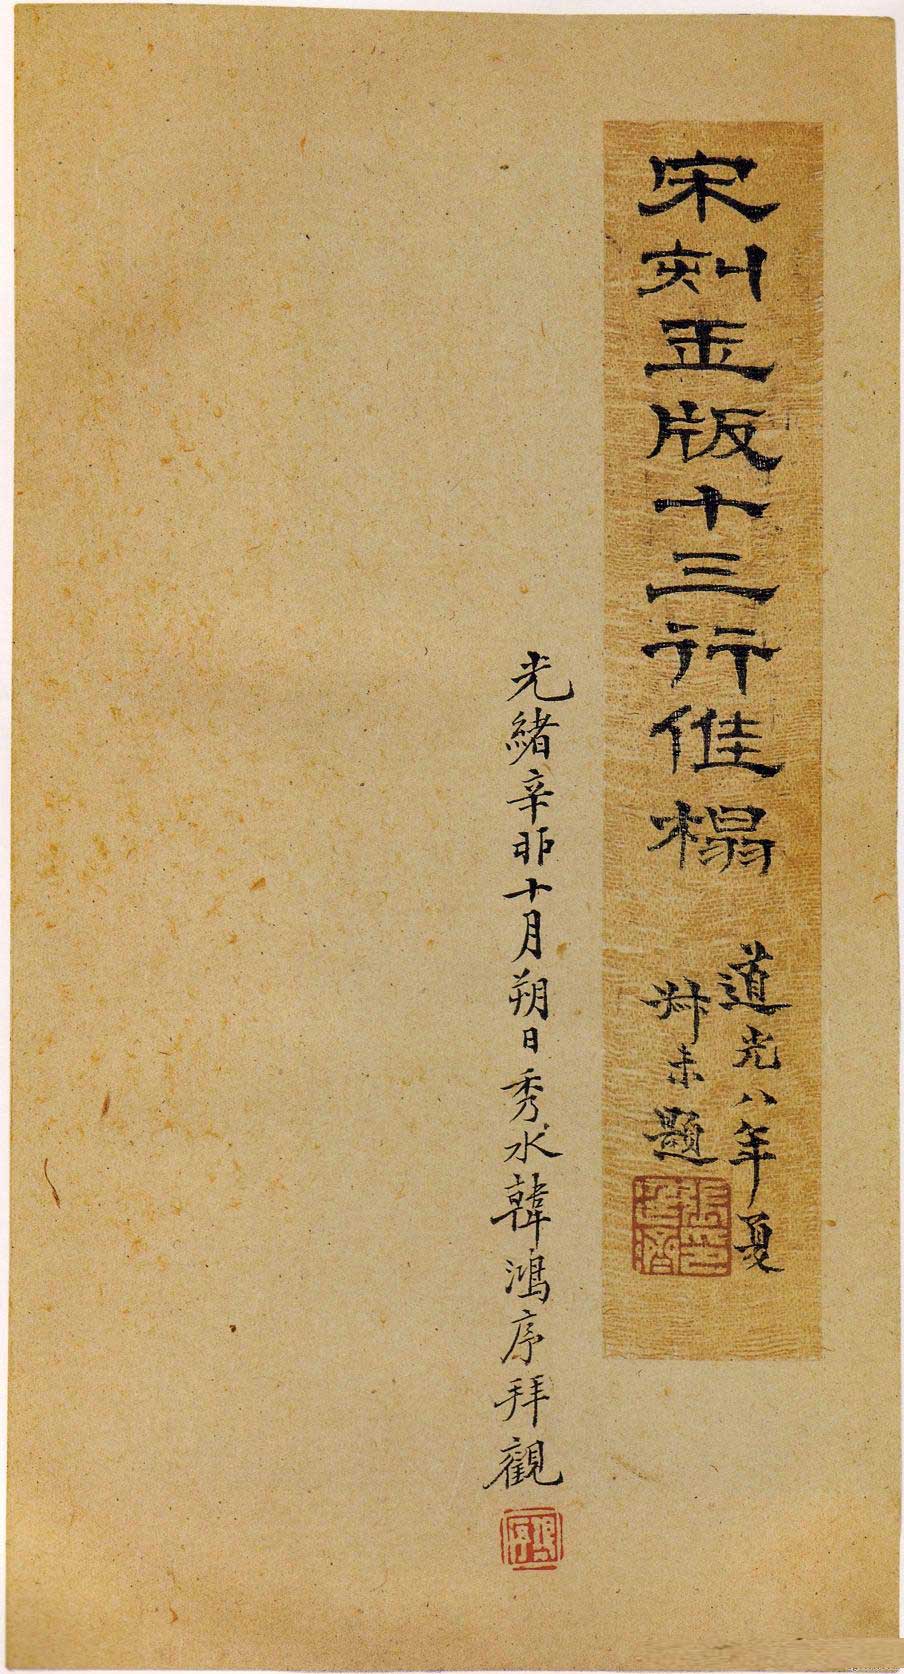 宋刻玉版十三行佳榻
道光八年夏
叔未題
張廷濟印
光緒辛卯十月朔日秀水韓鴻序拜觀